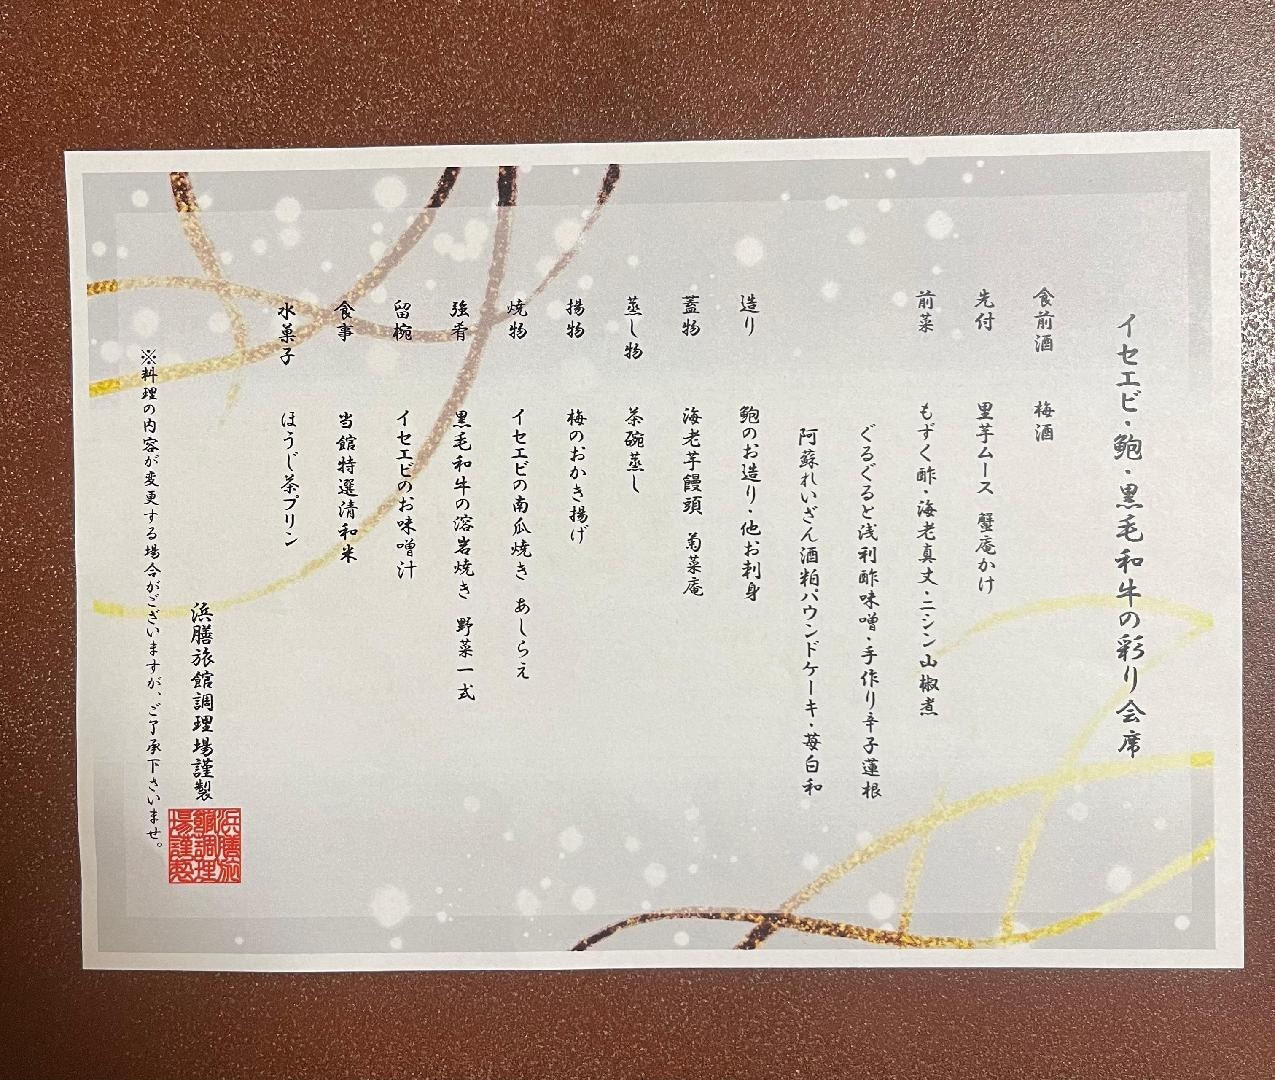 イセエビ・鮑・黒毛和牛の彩り会席
食前酒 梅酒
先付 里芋ムース 蟹庵かけ
前菜 もずく酢・海老真丈・ニシン山椒煮
ぐるぐると浅利酢味噌・手作り辛子蓮根
阿蘇れいざん酒粕パウンドケーキ・苺白和
造り 鮑のお造り・他お刺身
蓋物 海老芋饅頭 菊菜庵
蒸し物 茶碗蒸し
揚物 梅のおかき揚げ
焼物 イセエビの南瓜焼き あしらえ
強肴 黒毛和牛の溶岩焼き 野菜一式
留椀 イセエビのお味噌汁
食事 当館特選清和米
水菓子 ほうじ茶プリン
浜膳旅館調理場謹製
浜膳旅館調理場謹製
※料理の内容が変更する場合がございますが、ご了承下さいませ。